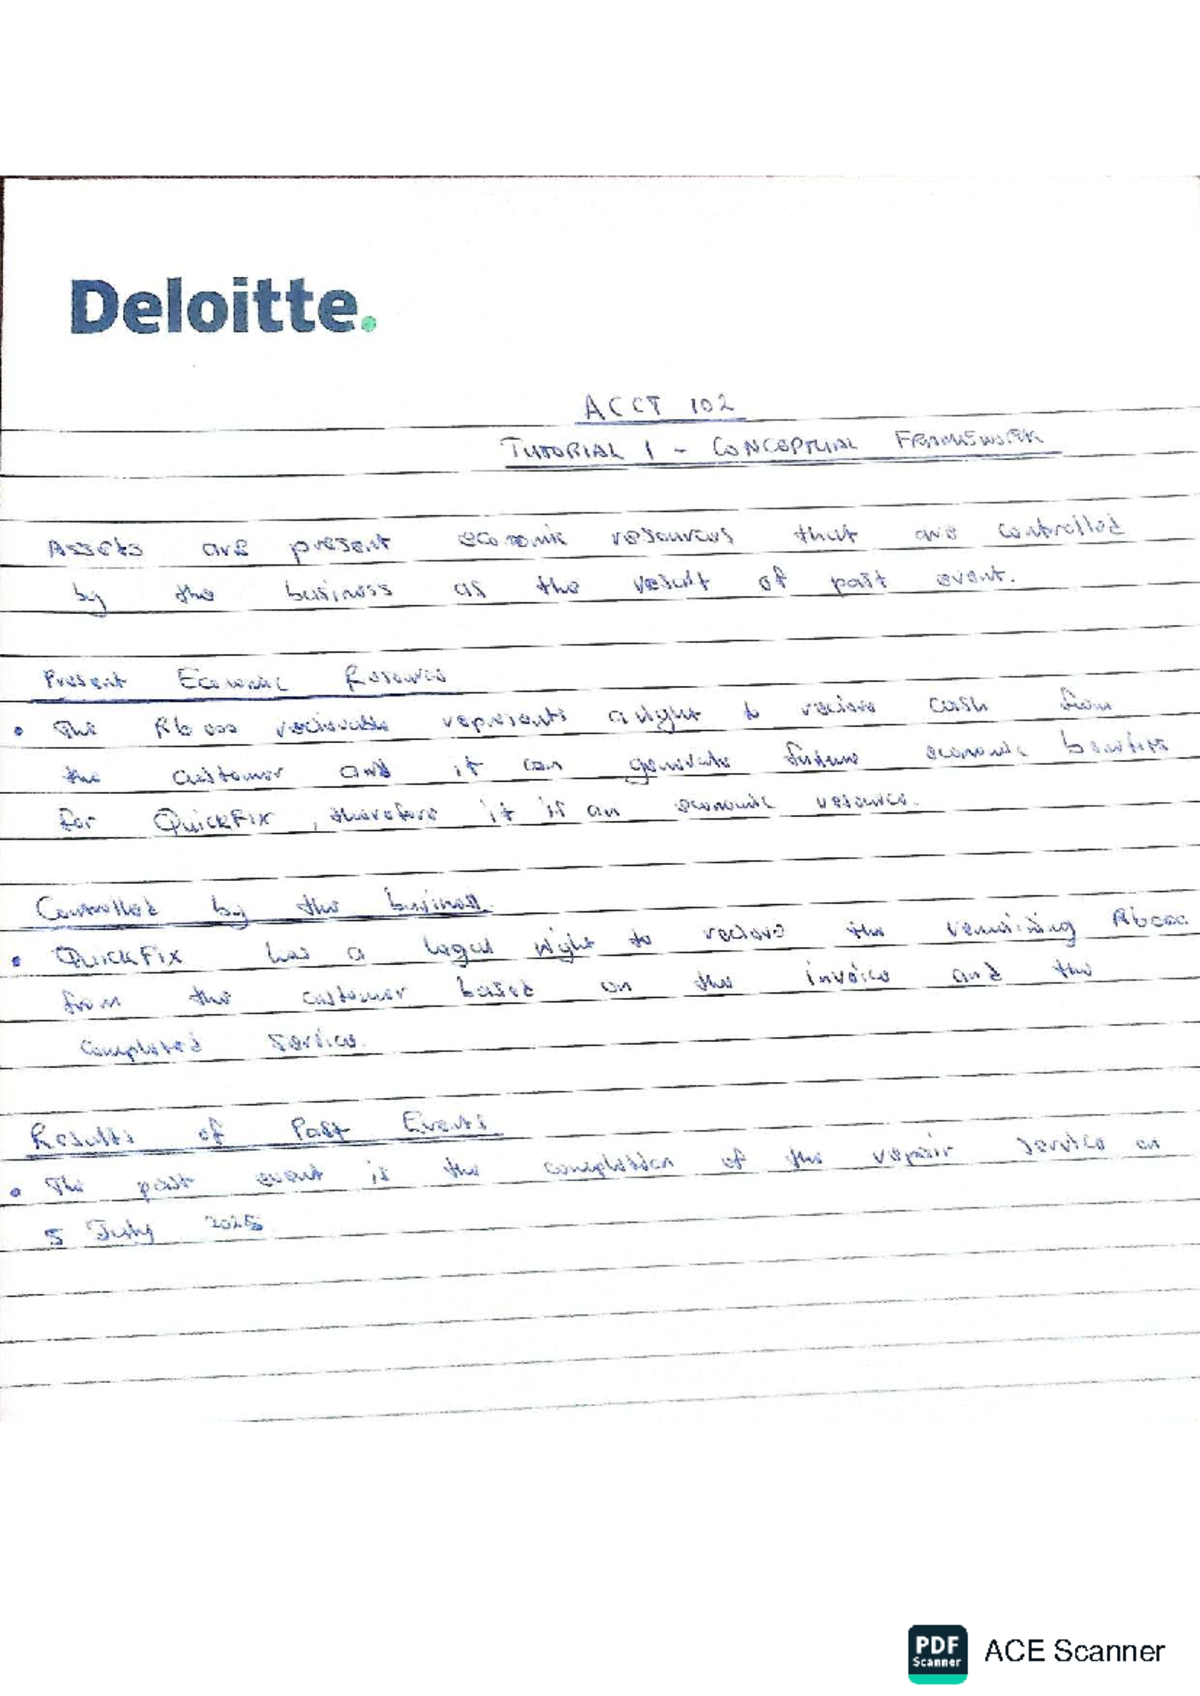 Deloitte.
ACCT 102
TUTORIAL 1 - CONCEPTUAL FRAMEWORK
Assets are present economic resources that are controlled
by the business as the result of past event.
Present Economic Resource
• The R6000 recievable represents a right to recieve cash from
the customer and it can generate future economic benefits
for QuickFix, therefore it is an economic resource.
Controlled by the business.
• QuickFix has a legal right to recieve the remaining R6000
from the customer based on the invoice and the
completed service.
Results of Past Events
• The past event is the completion of the repair service on
5 July 2025
PDF
Scanner
ACE Scanner